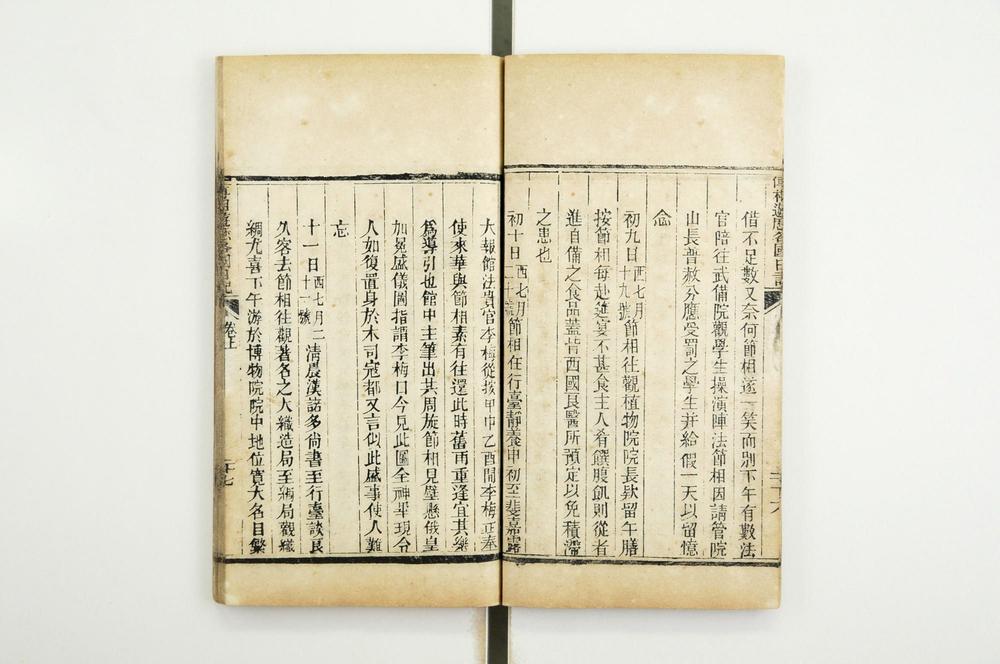 借不足數又奈何節相遂一笑而別下午有數法
官陪往武備院觀學生操演陣法節相因請管院
山長普赦分應受罰之學生并給假一天以留憶
念
初九日西七月十九號節相往觀植物院院長欵留午膳
按節相每赴筵宴不甚食主人肴饌腹飢則從者
進自備之食品蓋皆西國良醫所預定以免積滯
之患也
初十日西七月二十號節相在行臺靜養申初至斐嘉露
大報館法貴官李梅從按甲申乙酉間李梅正奉
使來華與節相素有往還此時舊雨重逢宜其樂
爲導引也館中主筆出共周旋節相見壁懸俄皇
加冕盛儀圖指謂李梅曰今見此圖全神畢現分
人如復置身於木司寇都又言似此盛事使人難
忘
十一日西七月二十一號清晨漢諾多尙書至行臺談良
久客去節相往觀著名之大織造局至綢局觀織
綢尤喜下午游於博物院院中地位寬大名目繁
傅相遊歷各國日記
卷上
二十六
二十七